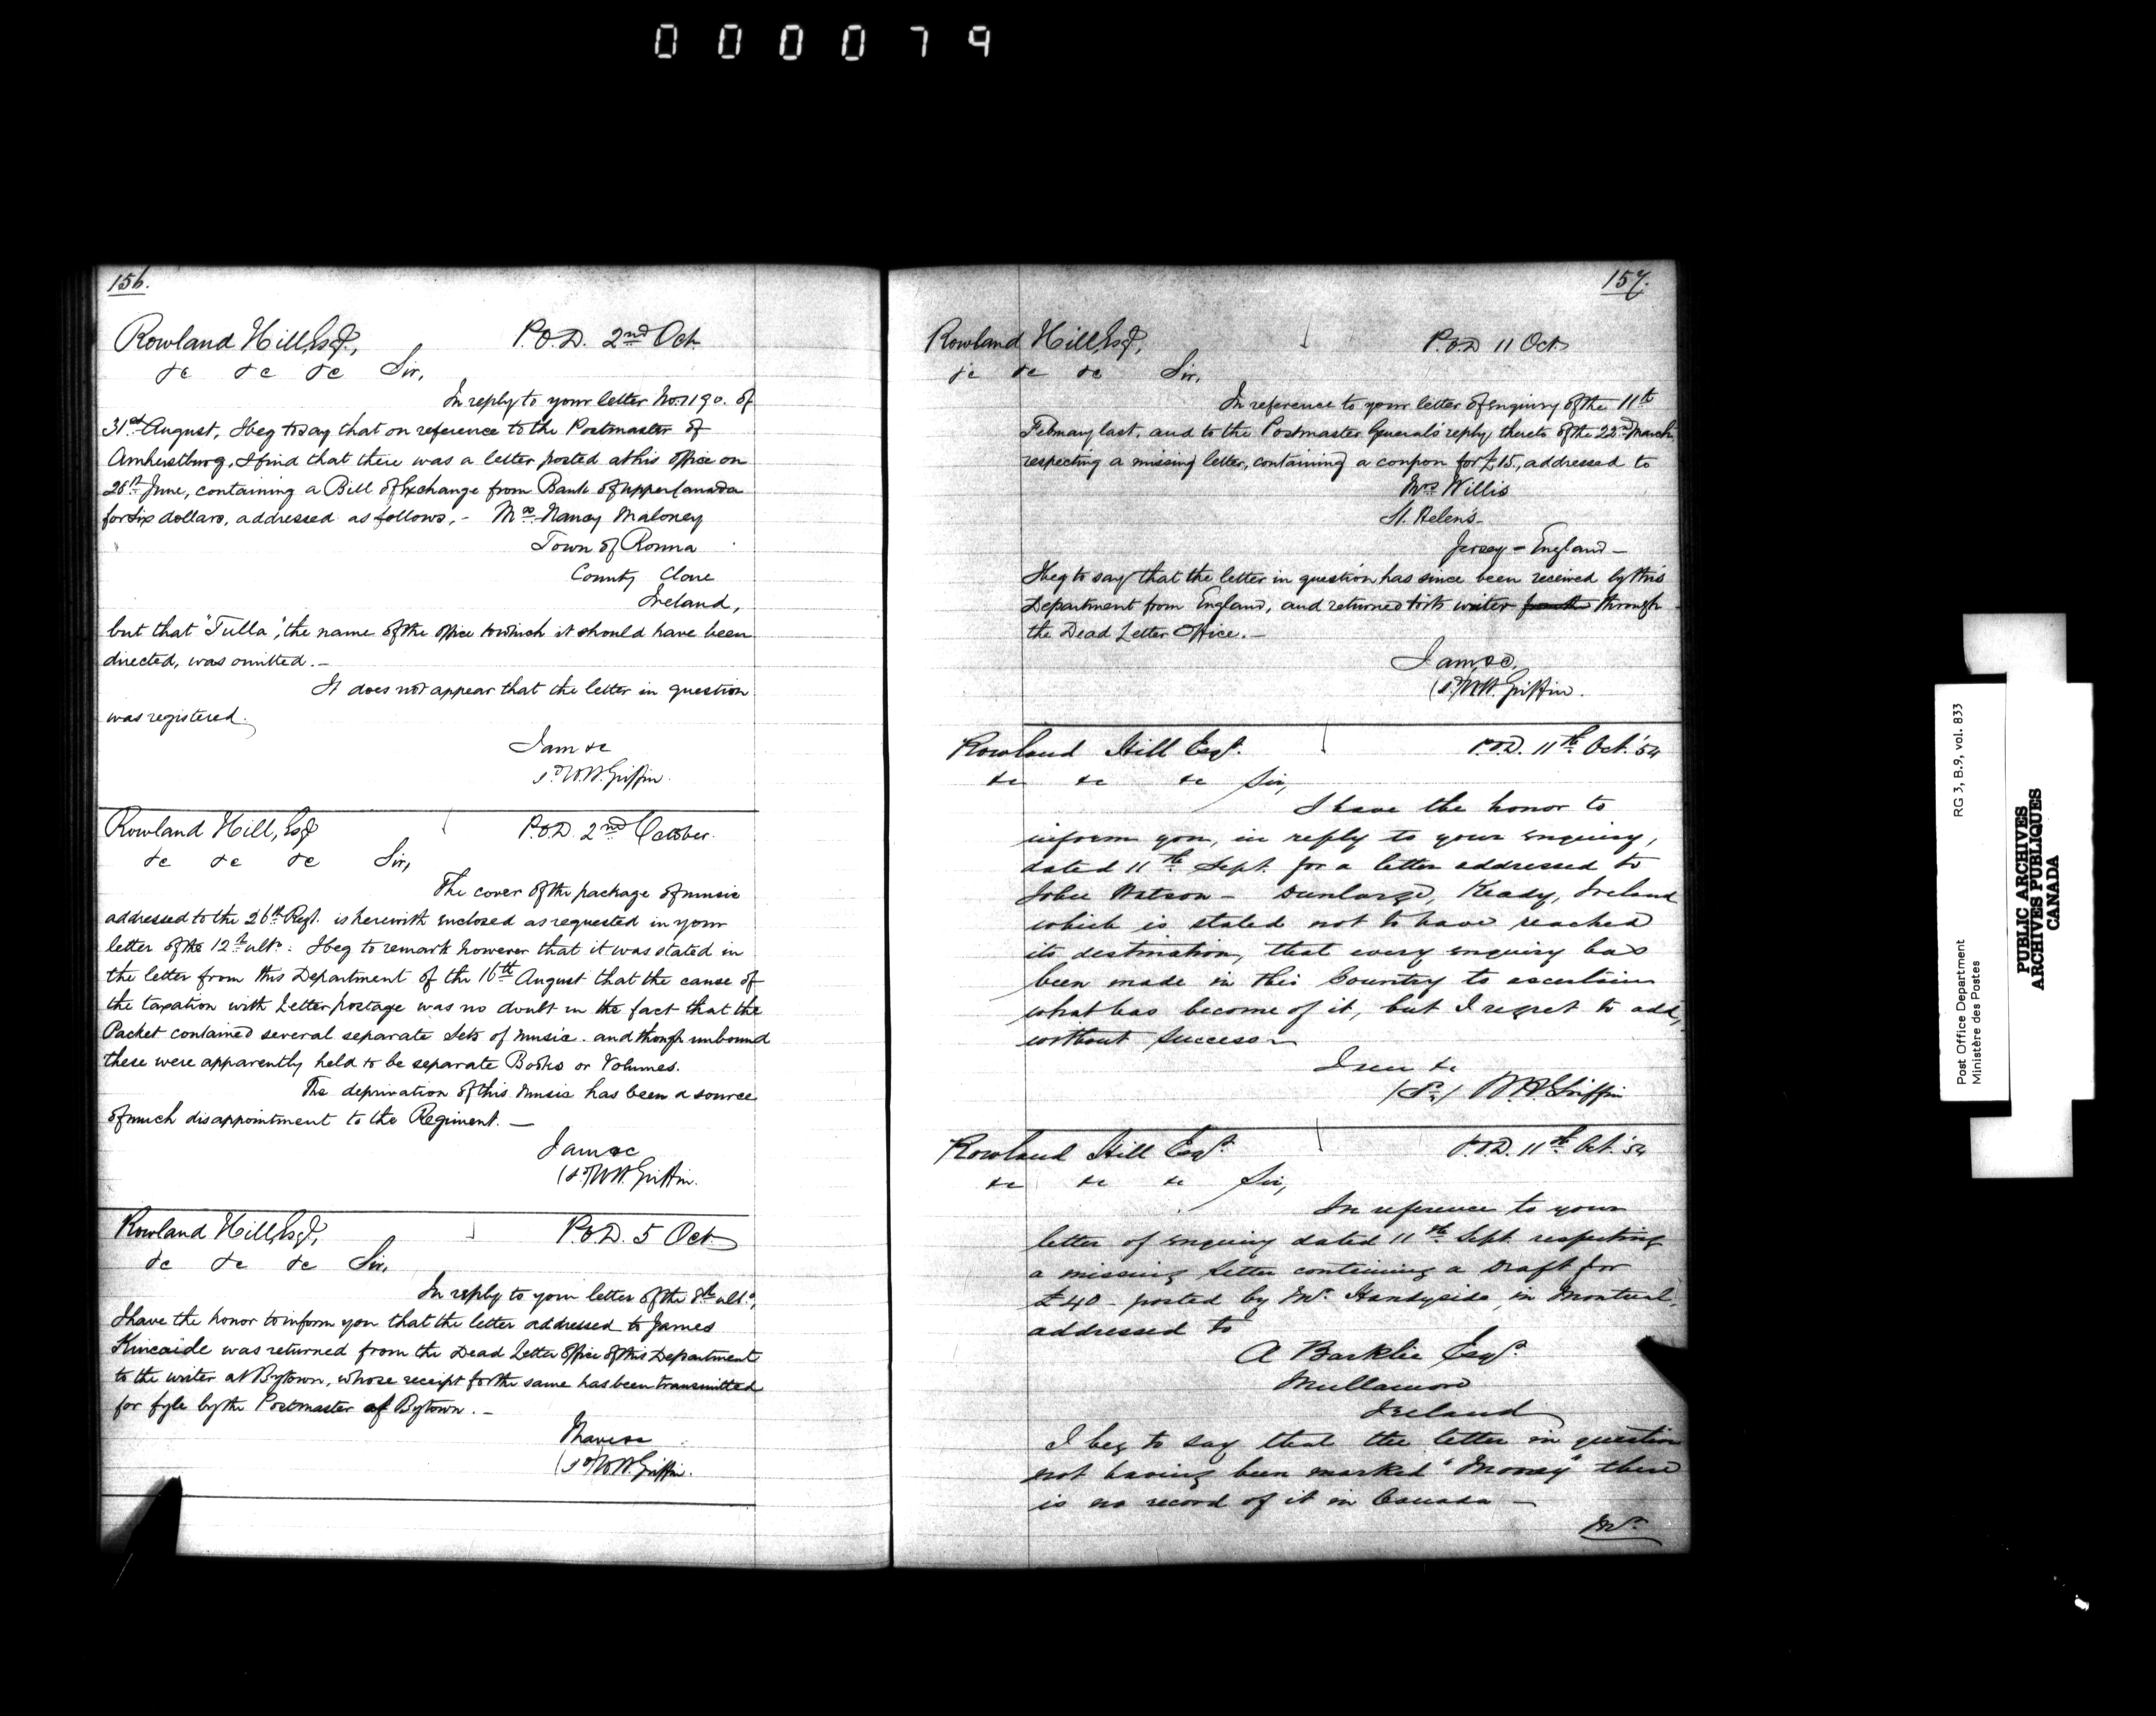 000079
156.
Rowland Hill, Esqr, P.O.D. 2nd Oct.
&c &c &c Sir,
In reply to your letter No. 1190. of
31st August, I beg to say that on reference to the Postmaster of
Amherstburg, I find that there was a letter posted at his office on
28th June, containing a Bill of Exchange from Bank of Upper Canada
for six dollars, addressed as follows,- Mrs Nancy Maloney
Town of
County Clare
Ireland,
but that "Tulla", the name of the office to which it should have been
directed, was omitted.-
It does not appear that the letter in question
was registered.
I am &c
sd W.H. Griffin.
Rowland Hill, Esqr P.O.D. 2nd October.
&c &c &c Sir,
The cover of the package of music
addressed to the 26th Regt. is herewith enclosed as requested in your
letter of the 12th ulto. I beg to remark however that it was stated in
the letter from this Department of the 16th August that the cause of
the taxation with Letter postage was no doubt in the fact that the
Packet contained several separate sets of music. and though unbound
these were apparently held to be separate Books or Volumes.
The deprivation of this music has been a source
of much disappointment to the Regiment. -
I am &c
(sd) W.H. Griffin.
Rowland Hill, Esqr, P.O.D. 5 Oct.
&c &c &c Sir,
In reply to your letter of the 8th ulto,
I have the honor to inform you that the letter addressed to James
Kincaide was returned from the Dead Letter Office of this Department
to the writer at Bytown, whose receipt for the same has been transmitted
for fyle by the Postmaster of Bytown. -
I have &c
(sd) W.H. Griffin.
157.
Rowland Hill, Esqr, P.O.D 11 Oct.
&c &c &c Sir,
In reference to your letter of enquiry of the 11th
February last, and to the Postmaster General's reply thereto of the 22nd March
respecting a missing letter, containing a coupon for £15., addressed to
Mrs Willis
St. Helen's-
Jersey - England -
I beg to say that the letter in question has since been received by this
Department from England, and returned to its writer through
the Dead Letter Office. -
I am &c.
(sd) W.H. Griffin.
Rowland Hill Esqr. P.O.D. 11th Oct. '54
&c &c &c Sir,
I have the honor to
inform you, in reply to your enquiry,
dated 11th Sept. for a letter addressed to
John Watson - Dunlarge, Keady, Ireland
which is stated not to have reached
its destination, that every enquiry has
been made in this Country to ascertain
what has become of it, but I regret to add,
without success -
I am &c
(Sd.) W.H. Griffin
Rowland Hill Esqr. P.O.D. 11th Oct. '54
&c &c &c Sir,
In reference to your
letter of enquiry dated 11th Sept. respecting
a missing letter containing a Draft for
£40 - posted by Mr. Handyside, in Montreal,
addressed to
A Barklie Esqr.
Mullamore
Ireland
I beg to say that the letter in question
not having been marked "Money" there
is no record of it in Canada -
Mr.
Post Office Department RG 3, B.9, vol. 833
Ministère des Postes
PUBLIC ARCHIVES
ARCHIVES PUBLIQUES
CANADA